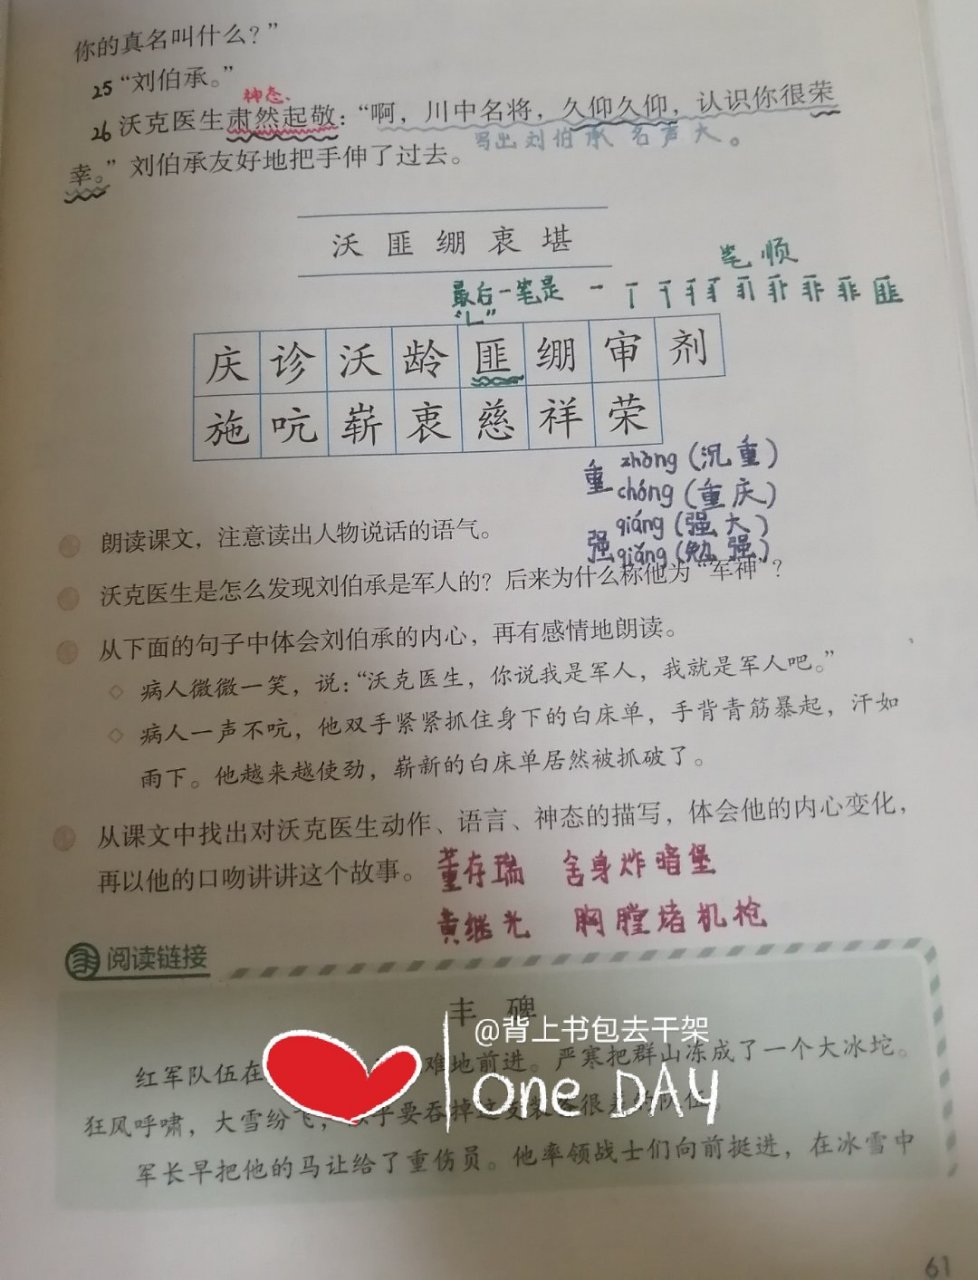 你的真名叫什么？”
25 “刘伯承。”
神态、
26 沃克医生肃然起敬：“啊，川中名将，久仰久仰，认识你很荣
写出刘伯承名声大。
幸。”刘伯承友好地把手伸了过去。
沃 匪 绷 衷 堪
笔顺
最后一笔是
“ㄴ”
匪
庆 诊 沃 龄 匪 绷 审 剂
施 吭 崭 衷 慈 祥 荣
重 zhòng (沉重)
chóng (重庆)
强 qiáng (强大)
qiǎng (勉强)
朗读课文，注意读出人物说话的语气。
沃克医生是怎么发现刘伯承是军人的？后来为什么称他为“军神”？
从下面的句子中体会刘伯承的内心，再有感情地朗读。
◇ 病人微微一笑，说：“沃克医生，你说我是军人，我就是军人吧。”
◇ 病人一声不吭，他双手紧紧抓住身下的白床单，手背青筋暴起，汗如
雨下。他越来越使劲，崭新的白床单居然被抓破了。
从课文中找出对沃克医生动作、语言、神态的描写，体会他的内心变化，
再以他的口吻讲讲这个故事。
董存瑞 舍身炸暗堡
黄继光 胸膛堵机枪
阅读链接
丰碑
@背上书包去干架
one DAy
红军队伍在 难地前进。严寒把群山冻成了一个大冰坨。
狂风呼啸，大雪纷飞，
军长早把他的马让给了重伤员。他率领战士们向前挺进，在冰雪中
61